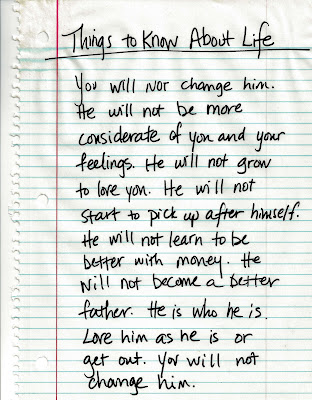 Things to Know About Life
You will not change him.
He will not be more
considerate of you and your
feelings. He will not grow
to love you. He will not
start to pick up after himself.
He will not learn to be
better with money. He
will not become a better
father. He is who he is.
Love him as he is or
get out. You will not
change him.